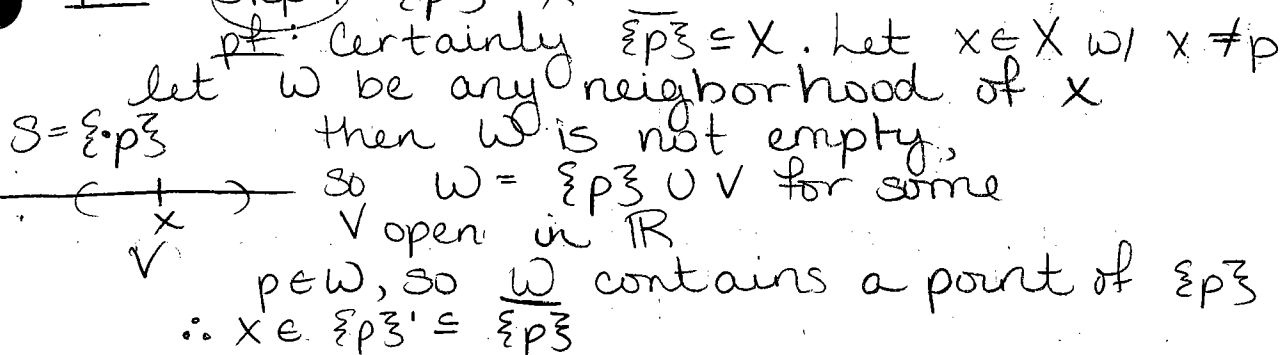 pf: Certainly \overline{{p}} ⊆ X. Let x ∈ X w/ x ≠ p
let W be any neigborhood of x
S = {p} then W is not empty,
so W = {p} ∪ V for some
x V open in ℝ
V
p ∈ W, so W contains a point of {p}
∴ x ∈ {p}' ⊆ \overline{{p}}